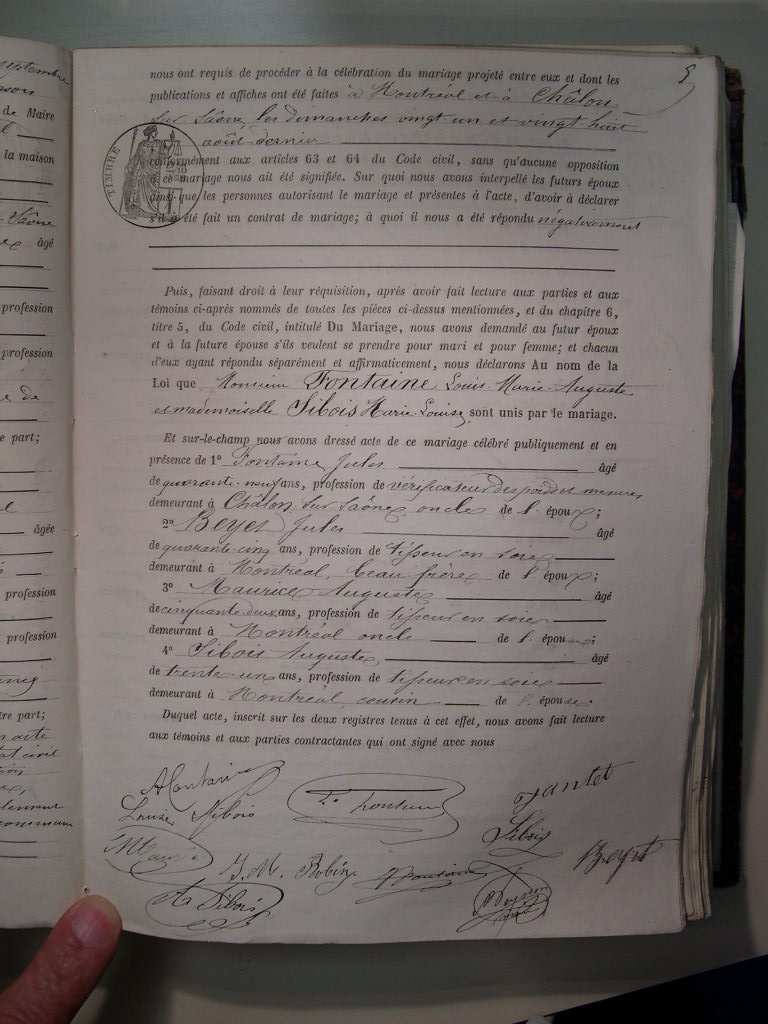 5
nous ont requis de procéder à la célébration du mariage projeté entre eux et dont les
publications et affiches ont été faites à Montréal et à Châlon
sur Saône, les dimanches vingt un et vingt huit
août dernier
TIMBRE
conformément aux articles 63 et 64 du Code civil, sans qu'aucune opposition
à ce mariage nous ait été signifiée. Sur quoi nous avons interpellé les futurs époux
ainsi que les personnes autorisant le mariage et présentes à l'acte, d'avoir à déclarer
s'il a été fait un contrat de mariage; à quoi il nous a été répondu négativement
Puis, faisant droit à leur réquisition, après avoir fait lecture aux parties et aux
témoins ci-après nommés de toutes les pièces ci-dessus mentionnées, et du chapitre 6,
titre 5, du Code civil, intitulé Du Mariage, nous avons demandé au futur époux
et à la future épouse s'ils veulent se prendre pour mari et pour femme; et chacun
d'eux ayant répondu séparément et affirmativement, nous déclarons Au nom de la
Loi que Monsieur Fontaine Louis Marie Auguste
et mademoiselle Sibois Marie Louise sont unis par le mariage.
Et sur-le-champ nous avons dressé acte de ce mariage célébré publiquement et en
présence de 1º Fontaine Jules âgé
de quarante neuf ans, profession de vérificateur des poids et mesures
demeurant à Châlon sur Saône, oncle de l'époux;
2º Beyet Jules âgé
de quarante cinq ans, profession de tisseur en soie
demeurant à Montréal, beau frère de l'époux;
3º Maurice Auguste âgé
de cinquante deux ans, profession de tisseur en soie
demeurant à Montréal oncle de l'épouse;
4º Sibois Auguste âgé
de trente un ans, profession de tisseur en soie
demeurant à Montréal, cousin de l'épouse.
Duquel acte, inscrit sur les deux registres tenus à cet effet, nous avons fait lecture
aux témoins et aux parties contractantes qui ont signé avec nous
A Fontaine
Louise Sibois
Jantet
Sibois
Beyet
J. M. Robin
A Sibois
septembre
de Maire
la maison
Saône
âgé
profession
profession
de
e part;
âgée
profession
profession
tre part;
acte
état civil